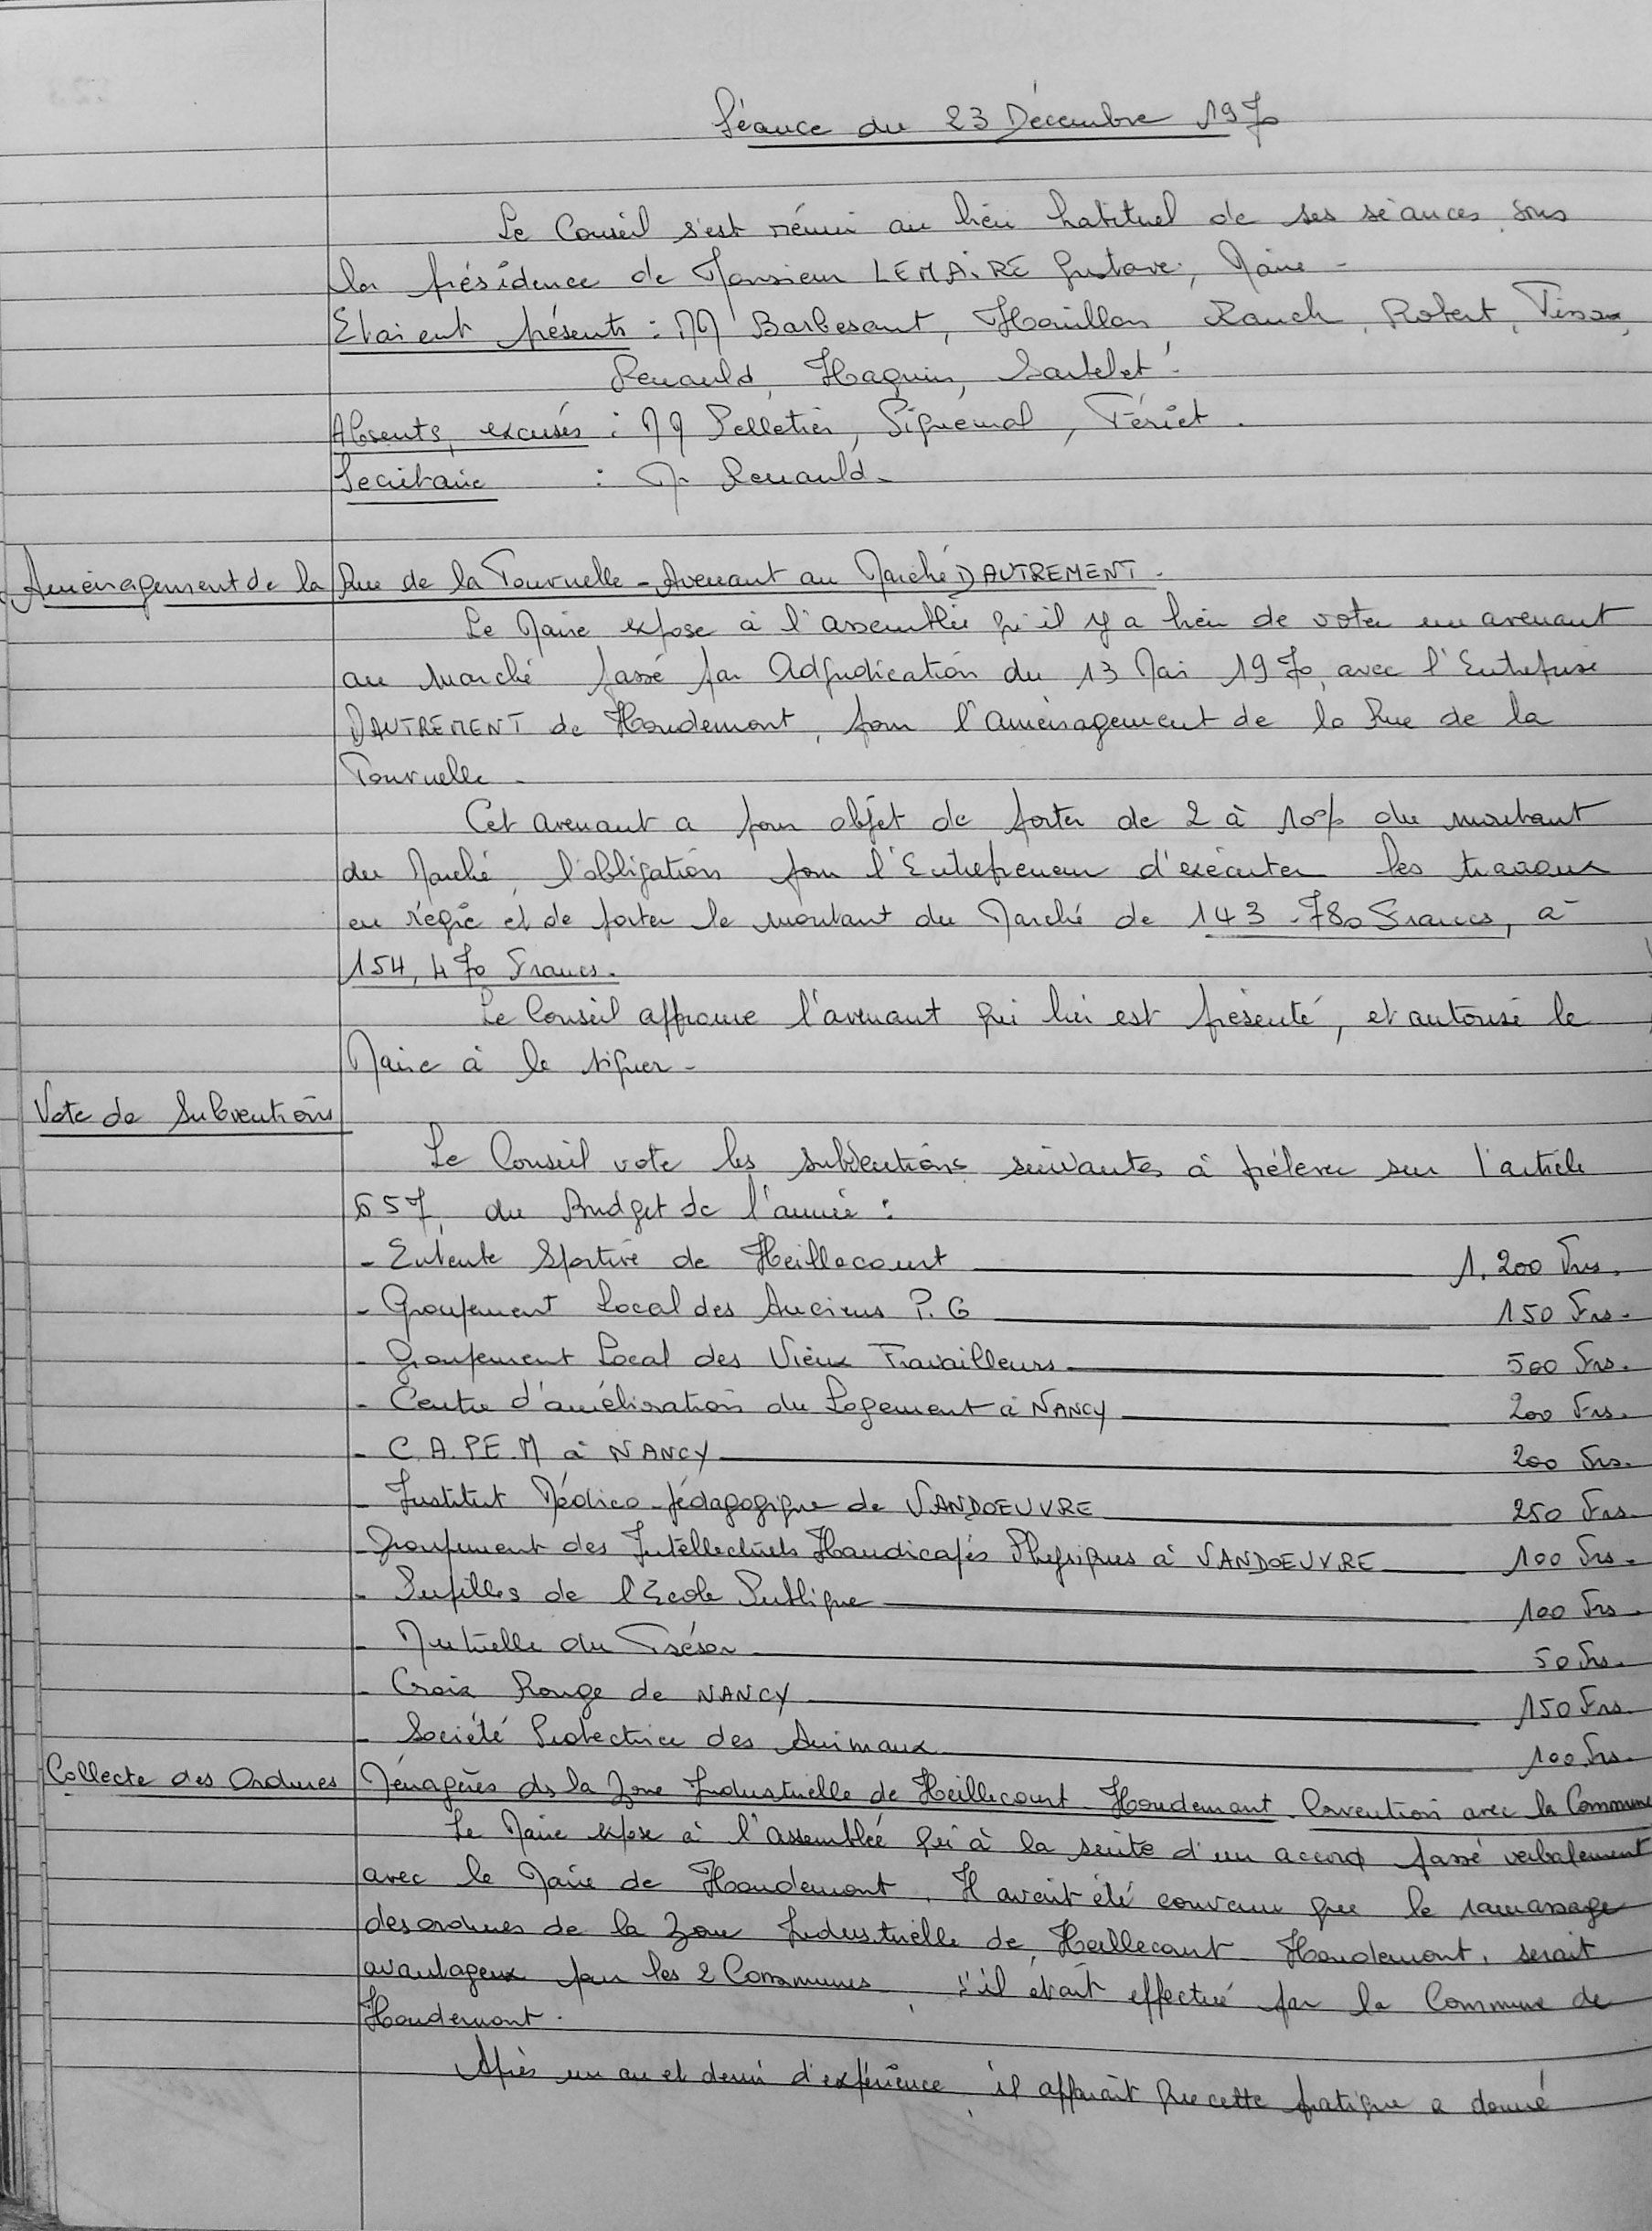 Séance du 23 Décembre 1970
Le Conseil s'est réuni au lieu habituel de ses séances sous
la présidence de Monsieur LEMAIRE Gustave, Maire -
Etaient présents : MM Barbesant, Houillon, Rauch, Robert,
Renauld, Haquin,
Absents, excusés : MM Pelletier, Fériet.
Secrétaire : M. Renauld -
Aménagement de la Rue de la Tournelle - Avenant au Marché DAUTREMENT -
Le Maire expose à l'assemblée qu'il y a lieu de voter un avenant
au marché passé par Adjudication du 13 Mai 1970, avec l'Entreprise
DAUTREMENT de Houdemont, pour l'aménagement de la Rue de la
Tournelle -
Cet avenant a pour objet de porter de 2 à 10% du montant
du Marché, l'obligation pour l'Entrepreneur d'exécuter les travaux
en régie et de porter le montant du Marché de 143.780 Francs, à
154,470 Francs.
Le Conseil approuve l'avenant qui lui est présenté, et autorise le
Maire à le signer -
Vote de Subventions
Le Conseil vote les subventions suivantes à prélever sur l'article
657, du Budget de l'année :
- Entente Sportive de Heillecourt 1.200 Frs.
- Groupement Local des Anciens P.G 150 Frs.
- Groupement Local des Vieux Travailleurs 500 Frs.
- Centre d'amélioration du Logement à NANCY 200 Frs.
- C.A.PE.M à NANCY 200 Frs.
- Institut Médico-pédagogique de VANDOEUVRE 250 Frs.
- Groupement des Intellectuels Handicapés Physiques à VANDOEUVRE 100 Frs.
- Pupilles de l'Ecole Publique 100 Frs.
- Mutuelle du Trésor 50 Frs.
- Croix Rouge de NANCY 150 Frs.
- Société Protectrice des Animaux 100 Frs.
Collecte des Ordures Ménagères ds la Zone Industrielle de Heillecourt - Houdemont. Convention avec la Commune
Le Maire expose à l'assemblée qu'à la suite d'un accord passé verbalement
avec le Maire de Houdemont, Il avait été convenu que le ramassage
des ordures de la Zone Industrielle de Heillecourt - Houdemont, serait
avantageux pour les 2 Communes, s'il était effectué par la Commune de
Houdemont.
Après un an et demi d'expérience, il apparait que cette pratique a donné